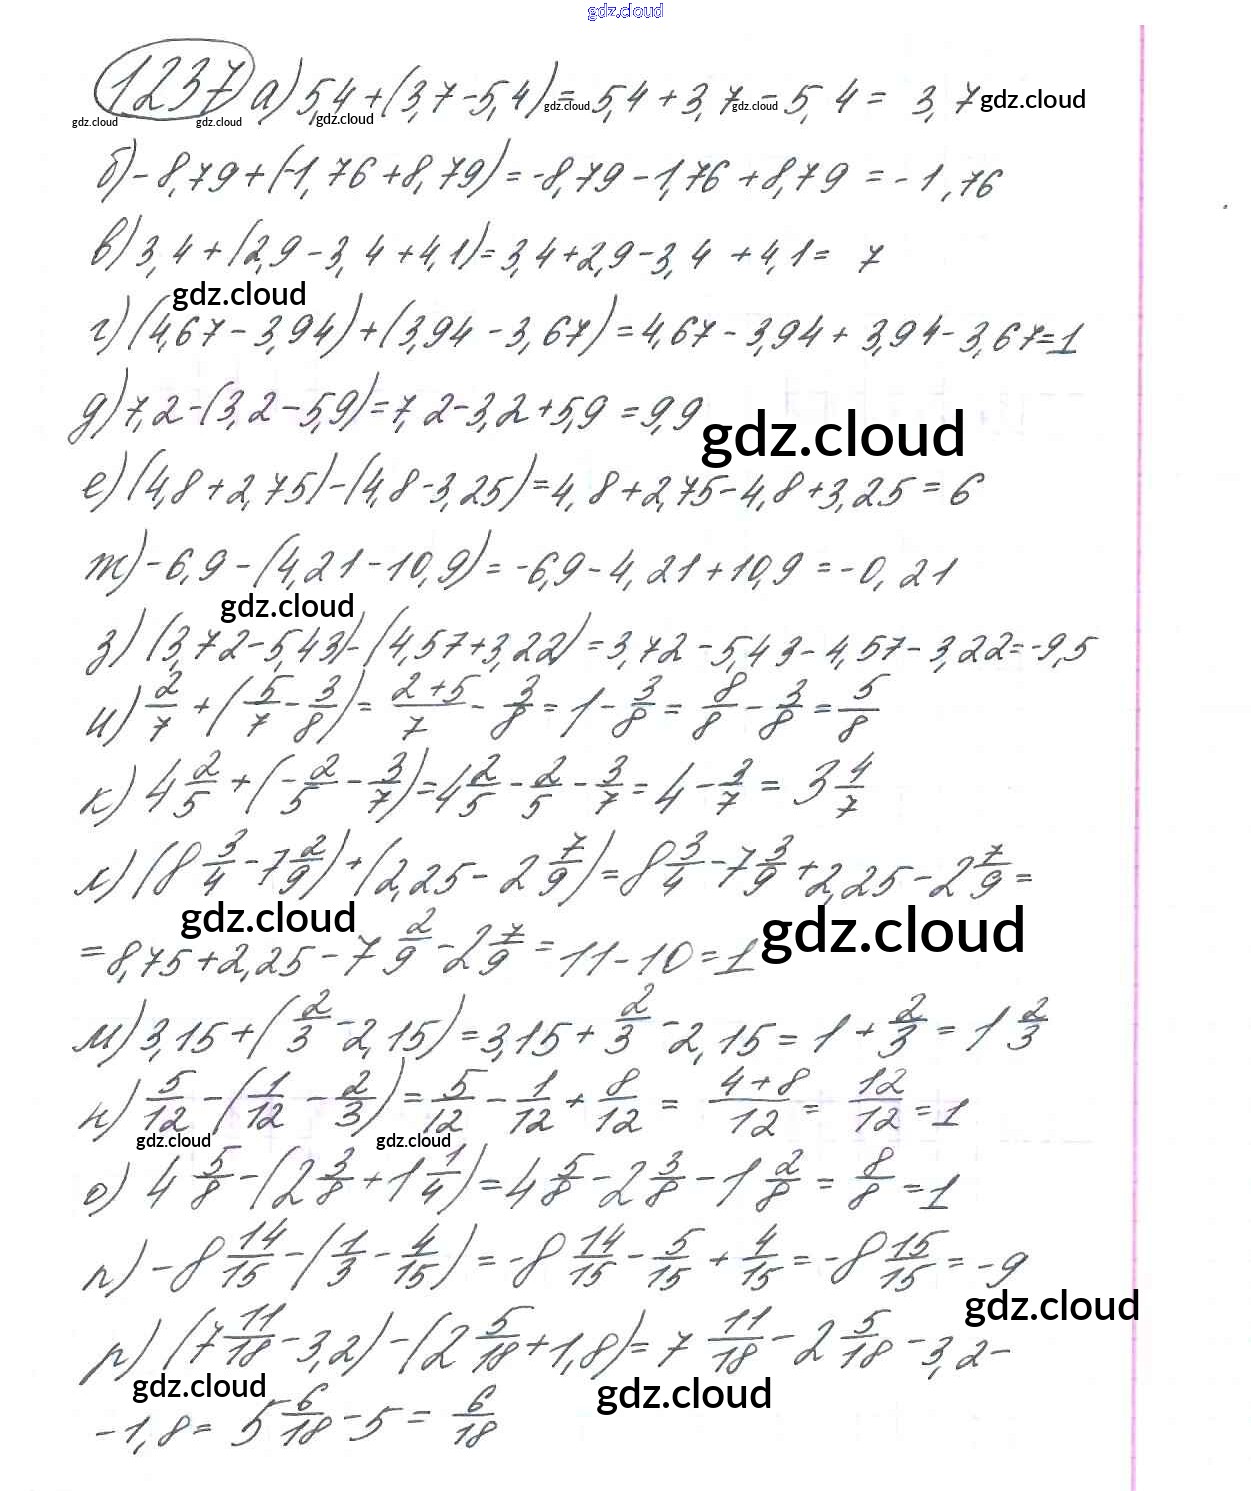 gdz.cloud
1237 а) 5,4 + (3,7 - 5,4) = 5,4 + 3,7 - 5,4 = 3,7 gdz.cloud
gdz.cloud gdz.cloud gdz.cloud gdz.cloud gdz.cloud
б) -8,79 + (-1,76 + 8,79) = -8,79 - 1,76 + 8,79 = -1,76
в) 3,4 + (2,9 - 3,4 + 4,1) = 3,4 + 2,9 - 3,4 + 4,1 = 7
gdz.cloud
г) (4,67 - 3,94) + (3,94 - 3,67) = 4,67 - 3,94 + 3,94 - 3,67 = 1
д) 7,2 - (3,2 - 5,9) = 7,2 - 3,2 + 5,9 = 9,9
gdz.cloud
е) (4,8 + 2,75) - (4,8 - 3,25) = 4,8 + 2,75 - 4,8 + 3,25 = 6
ж) -6,9 - (4,21 - 10,9) = -6,9 - 4,21 + 10,9 = -0,21
gdz.cloud
з) (3,72 - 5,43) - (4,57 + 3,22) = 3,72 - 5,43 - 4,57 - 3,22 = -9,5
и) 2/7 + (5/7 - 3/8) = (2+5)/7 - 3/8 = 1 - 3/8 = 8/8 - 3/8 = 5/8
к) 4 2/5 + (-2/5 - 3/7) = 4 2/5 - 2/5 - 3/7 = 4 - 3/7 = 3 4/7
л) (8 3/4 - 7 2/9) + (2,25 - 2 7/9) = 8 3/4 - 7 3/9 + 2,25 - 2 7/9 =
gdz.cloud gdz.cloud
= 8,75 + 2,25 - 7 2/9 - 2 7/9 = 11 - 10 = 1
м) 3,15 + (2/3 - 2,15) = 3,15 + 2/3 - 2,15 = 1 + 2/3 = 1 2/3
н) 5/12 - (1/12 - 2/3) = 5/12 - 1/12 + 8/12 = (4+8)/12 = 12/12 = 1
gdz.cloud gdz.cloud
о) 4 5/8 - (2 3/8 + 1 1/4) = 4 5/8 - 2 3/8 - 1 2/8 = 8/8 = 1
п) -8 14/15 - (1/3 - 4/15) = -8 14/15 - 5/15 + 4/15 = -8 15/15 = -9
gdz.cloud
р) (7 11/18 - 3,2) - (2 5/18 + 1,8) = 7 11/18 - 2 5/18 - 3,2 -
gdz.cloud gdz.cloud
-1,8 = 5 6/18 - 5 = 6/18